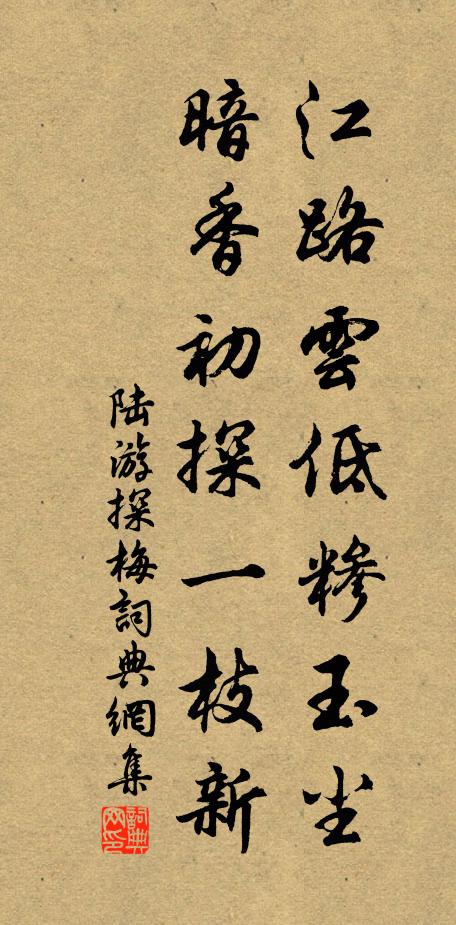 江路雲低糝玉尘
暗香初探一枝新
陆游探梅詞典網集
詞典网印